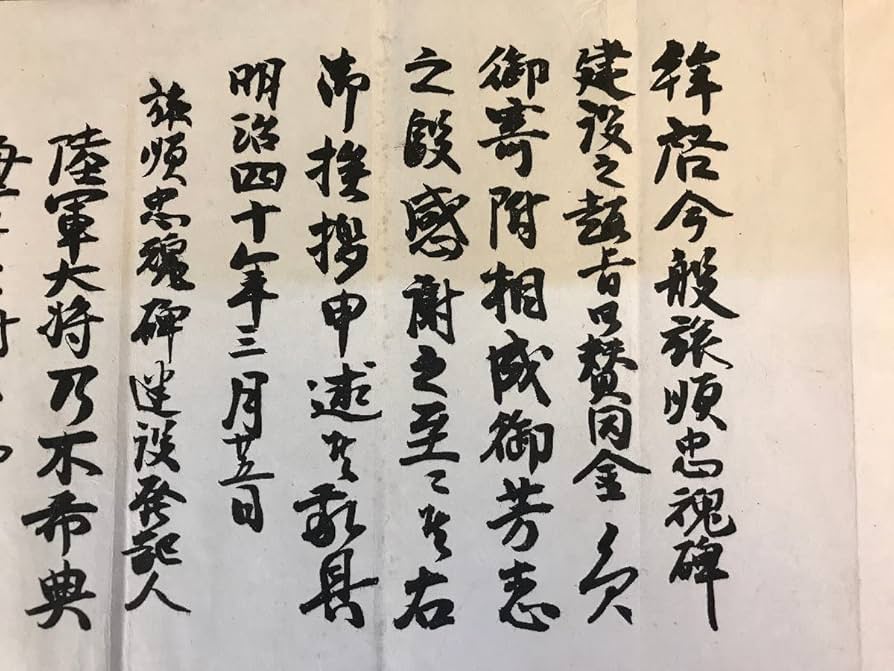 拝啓今般旅順忠魂碑
建設之趣旨御賛同金員
御寄附相成御芳志
之段感謝之至ニ候右
御挨拶申述候敬具
明治四十年三月廿五日
旅順忠魂碑建設発起人
陸軍大将乃木希典